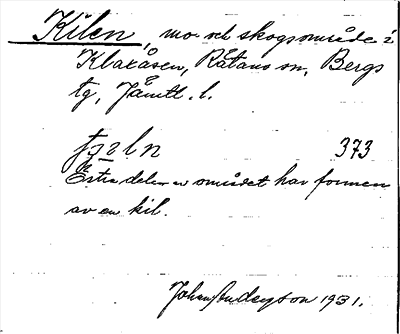 Kilen, mo och skogsområde i
Klaxåsen, Rätans sn, Bergs
tg, Jämtl. l.
373
Östra delen av området har formen
av en kil.
Johan Anderson 1931.